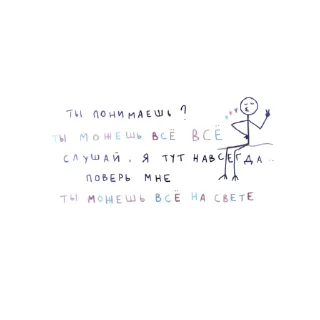 ТЫ ПОНИМАЕШЬ?
ТЫ МОЖЕШЬ ВСЁ ВСЁ
СЛУШАЙ, Я ТУТ НАВСЕГДА..
ПОВЕРЬ МНЕ
ТЫ МОЖЕШЬ ВСЁ НА СВЕТЕ